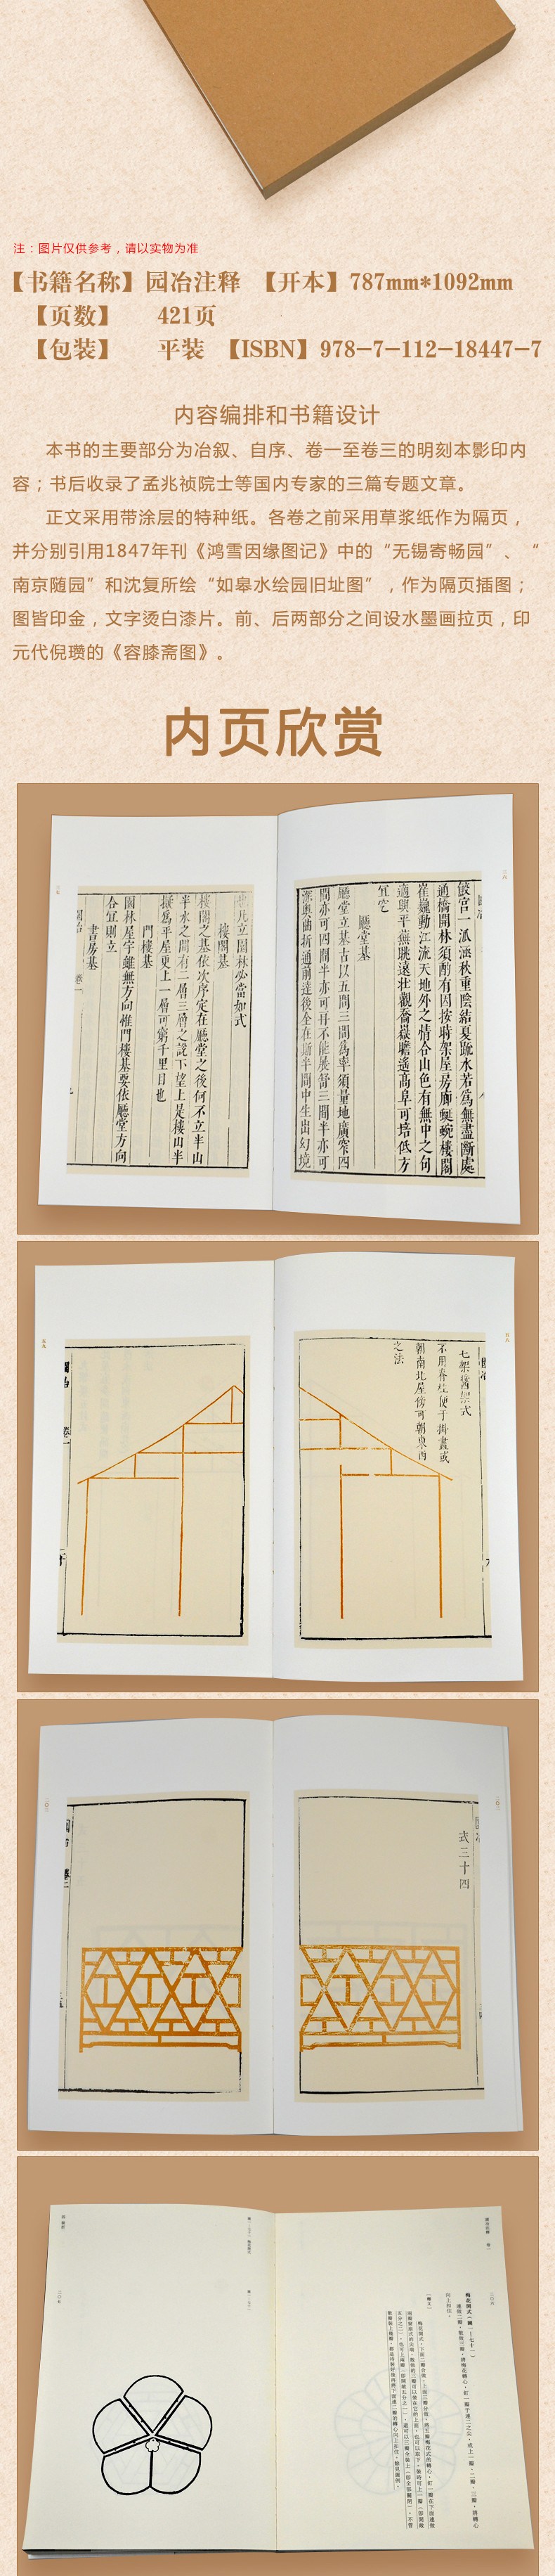 注：图片仅供参考，请以实物为准
【书籍名称】园冶注释 【开本】787mm*1092mm
【页数】 421页
【包装】 平装 【ISBN】978-7-112-18447-7
内容编排和书籍设计
本书的主要部分为冶叙、自序、卷一至卷三的明刻本影印内
容；书后收录了孟兆祯院士等国内专家的三篇专题文章。
正文采用带涂层的特种纸。各卷之前采用草浆纸作为隔页，
并分别引用1847年刊《鸿雪因缘图记》中的“无锡寄畅园”、“
南京随园”和沈复所绘“如皋水绘园旧址图”，作为隔页插图；
图皆印金，文字烫白漆片。前、后两部分之间设水墨画拉页，印
元代倪瓒的《容膝斋图》。
内页欣赏
鮫宮一派涵秋重陰結夏疏水若爲無盡斷處
通橋開林須酌有因按時架屋房廊蜒蜿樓閣
崔巍動江流天地外之情合山色有無中之句
適興平蕪眺遠壯觀喬嶽瞻遙高阜可培低方
宜挖
廳堂基
廳堂立基古以五間三間爲率須量地廣窄四
間亦可四間半亦可再不能展舒三間半亦可
深奧曲折通前達後全在斯半間中生出幻境
也凡立園林必當如式
樓閣基
樓閣之基依次序定在廳堂之後何不立半山
半水之間有二層三層之說下望上是樓山半
擬爲平屋更上一層可窮千里目也
門樓基
園林屋宇雖無方向惟門樓基要依廳堂方向
合宜則立
書房基
七架醬架式
不用脊柱便于掛畫或
朝南北屋傍可朝東西
之法
式三十四